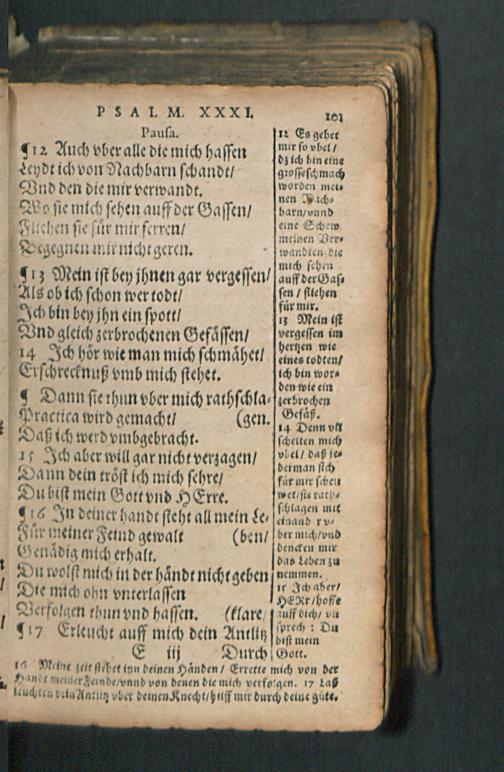 PSALM. XXXI. 101
Pausa.
¶12 Auch vber alle die mich hassen
Leydt ich von Nachbarn schandt/
Vnd den die mir verwandt.
Wo sie mich sehen auff der Gassen/
Fliehen sie für mir ferren/
Begegnen mir nicht geren.
¶13 Mein ist bey jhnen gar vergessen/
Als ob ich schon wer todt/
Ich bin bey jhn ein spott/
Vnd gleich zerbrochenen Gefässen/
14 Ich hör wie man mich schmähet/
Erschrecknuß vmb mich stehet.
¶ Dann sie thun vber mich rathschla-
Practica wird gemacht/ (gen.
Daß ich werd vmbgebracht.
15 Ich aber will gar nicht verzagen/
Dann dein tröst ich mich sehre/
Du bist mein Gott vnd HErre.
¶16 In deiner handt steht all mein Le-
Für meiner Feind gewalt (ben/
Genädig mich erhalt.
Du wolst mich in der händt nicht geben
Die mich ohn vnterlassen
Verfolgen thun vnd hassen. (klare/
¶17 Erleucht auff mich dein Antlitz
E iij Durch
12 Es gehet
mir so vbel/
dz ich bin eine
grosse schmach
worden mei-
nen Nach-
barn/vnnd
eine Schew
meinen Ver-
wandten die
mich sehen
auff der Gas-
sen / fliehen
für mir.
13 Mein ist
vergessen im
hertzen wie
eines todten/
ich bin wor-
den wie ein
zerbrochen
Gefäß.
14 Denn vil
schelten mich
vbel/ daß je-
derman sich
für mir schew
wet/sie rath-
schlagen mit
einand v-
ber mich/vnd
dencken mir
das Leben zu
nemmen.
15 Ich aber/
HERr/hoffe
auff dich/ vn
sprech : Du
bist mein
Gott.
16 Meine zeit stehet inn deinen Händen/ Errette mich von der
Handt meiner Feinde/vnnd von denen die mich verfolgen. 17 Laß
leuchten dein Antlitz vber deinen Knecht/hilff mir durch deine güte.